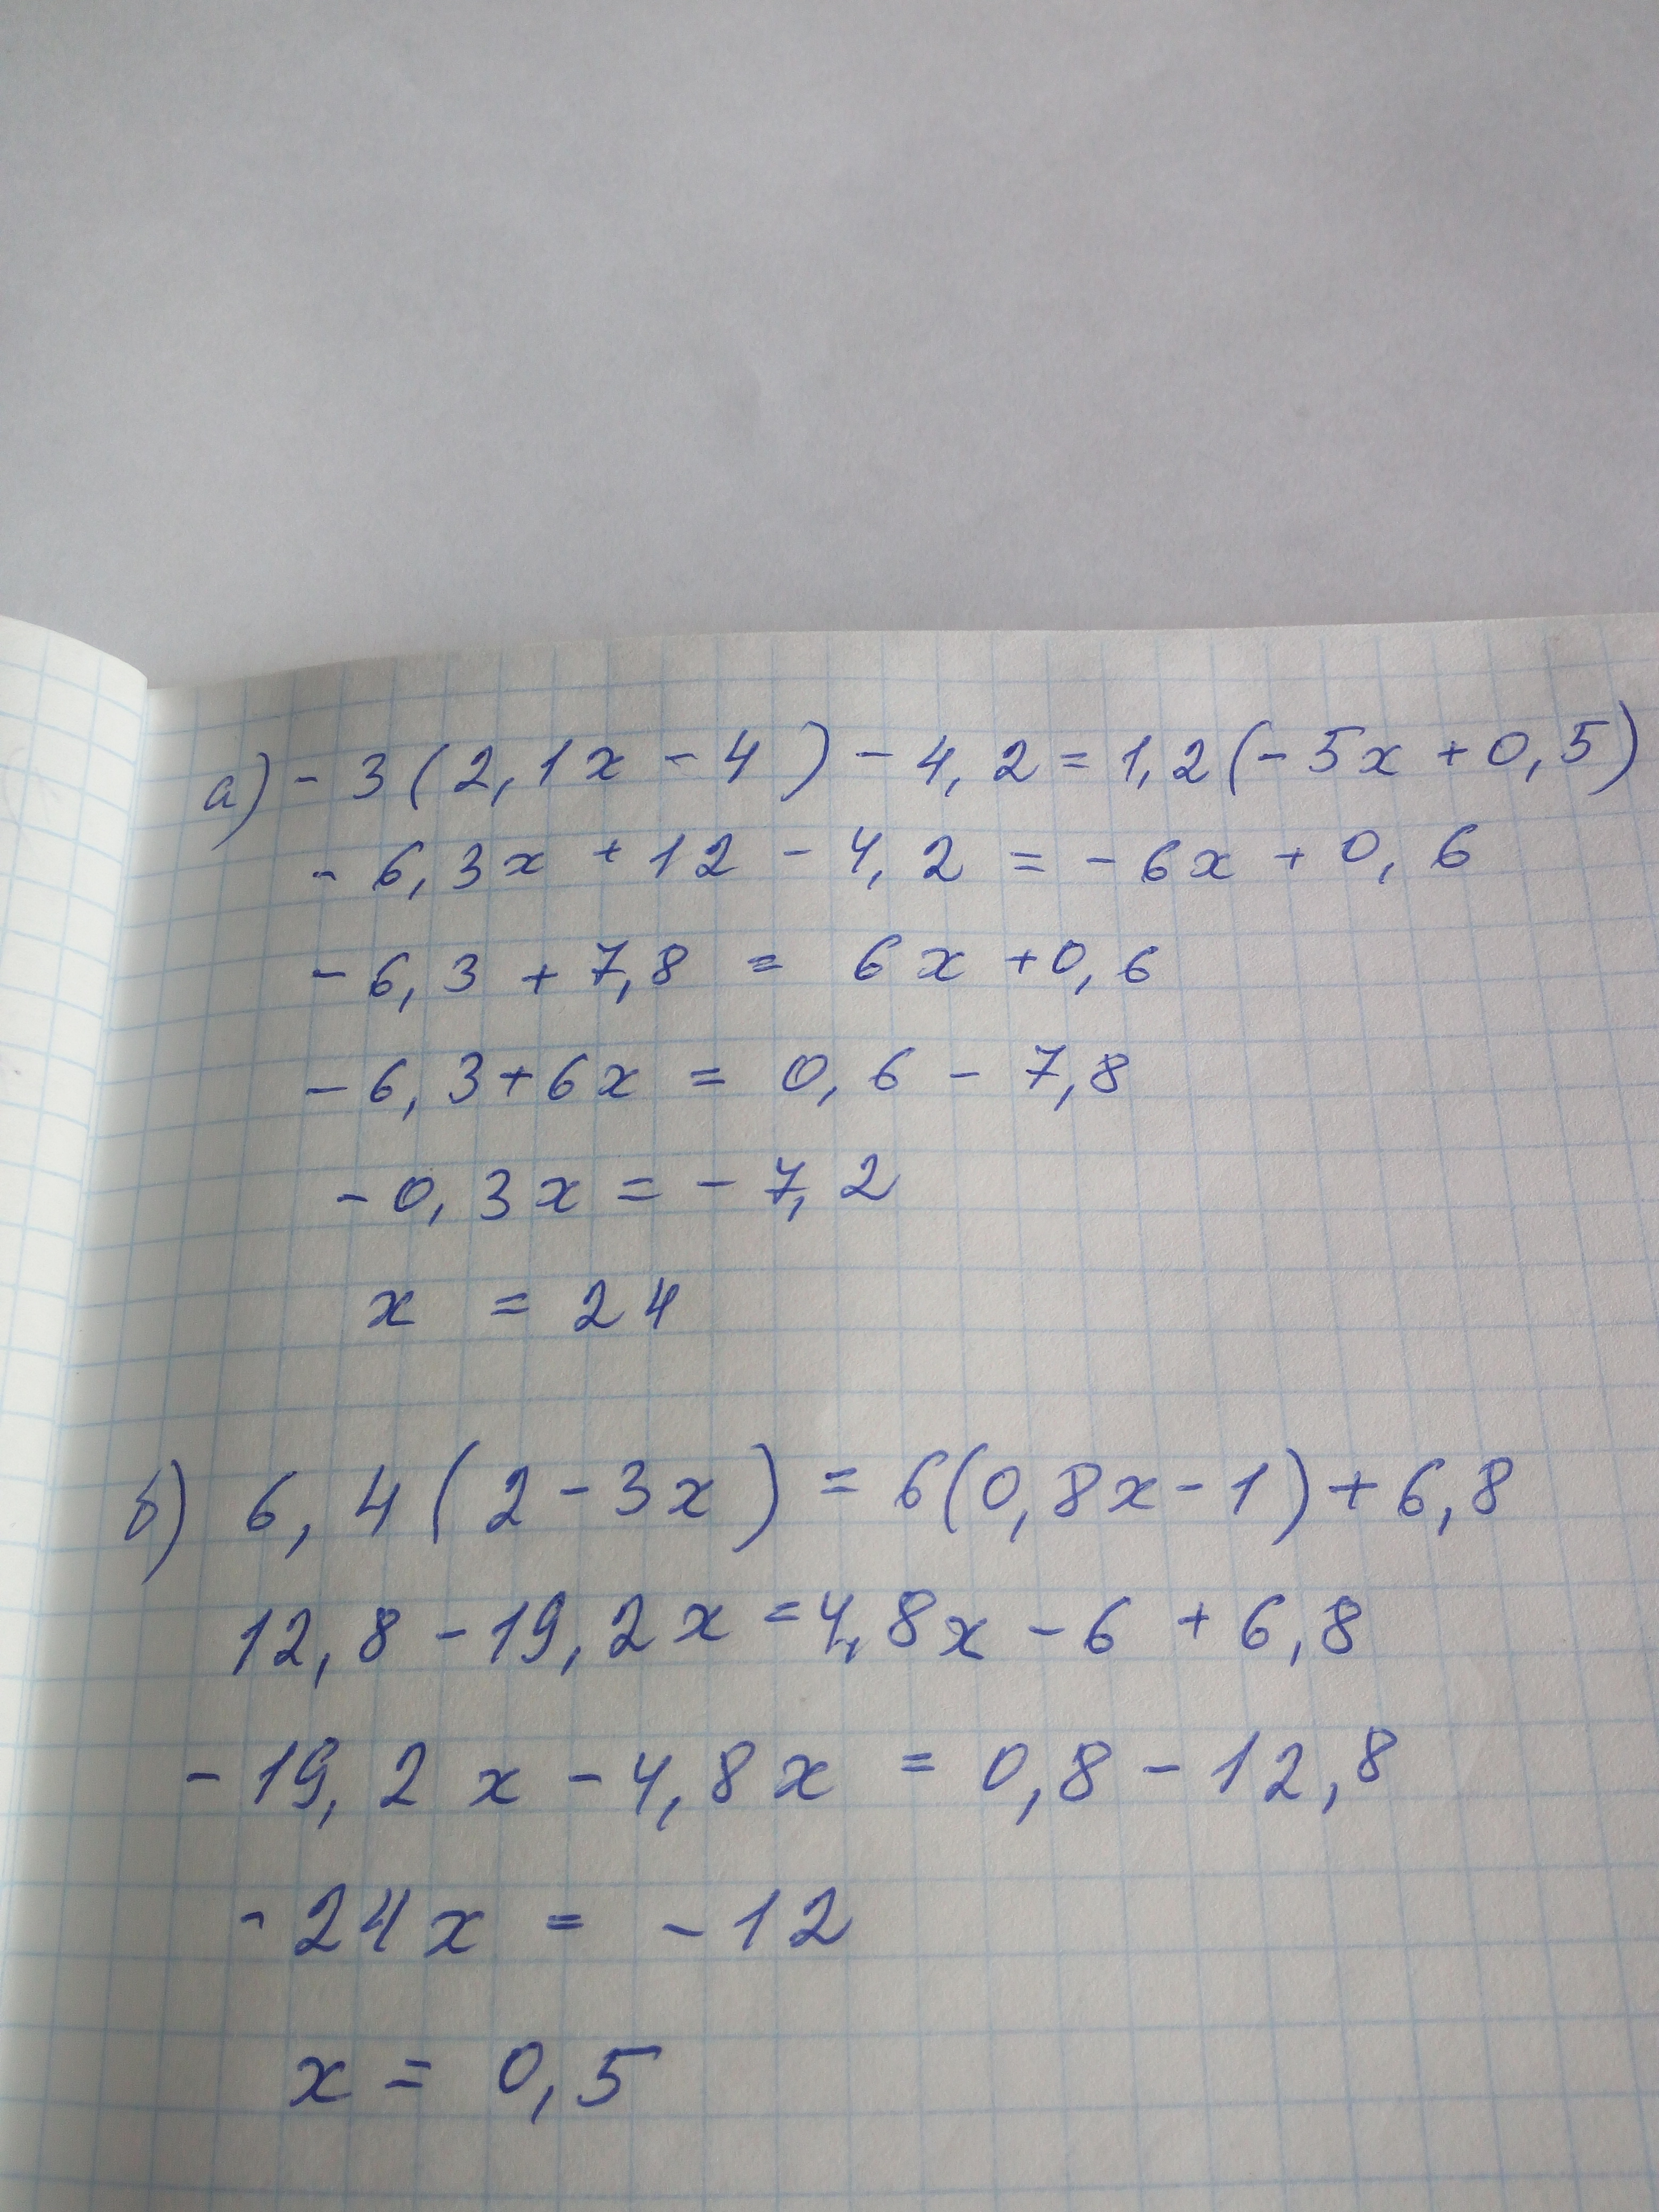 а) - 3 ( 2,1x - 4 ) - 4,2 = 1,2 (- 5x + 0,5)
- 6,3x + 12 - 4,2 = - 6x + 0,6
- 6,3 + 7,8 = 6x + 0,6
- 6,3 + 6x = 0,6 - 7,8
- 0,3x = - 7,2
x = 24
б) 6,4 ( 2 - 3x ) = 6(0,8x - 1) + 6,8
12,8 - 19,2x = 4,8x - 6 + 6,8
- 19,2x - 4,8x = 0,8 - 12,8
- 24x = - 12
x = 0,5